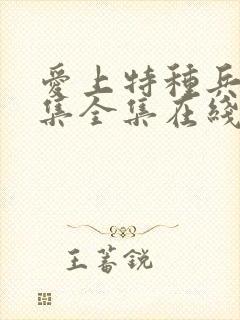 愛上特種兵
集全集在綫
王蕃銳